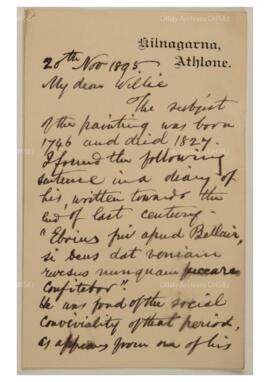 Kilnagarna,
Athlone.
20th Nov 1895
My dear Willie
The subject
of the painting was born
1746 and died 1827.
I found the following
sentence in a diary of
his, written towards the
end of last century.
"Ebrius fui apud Bellair,
si Deus dat veniam
rursus nunquam peccare
Confitebor".
He was fond of the social
Conviviality of that period,
as appears from one of his